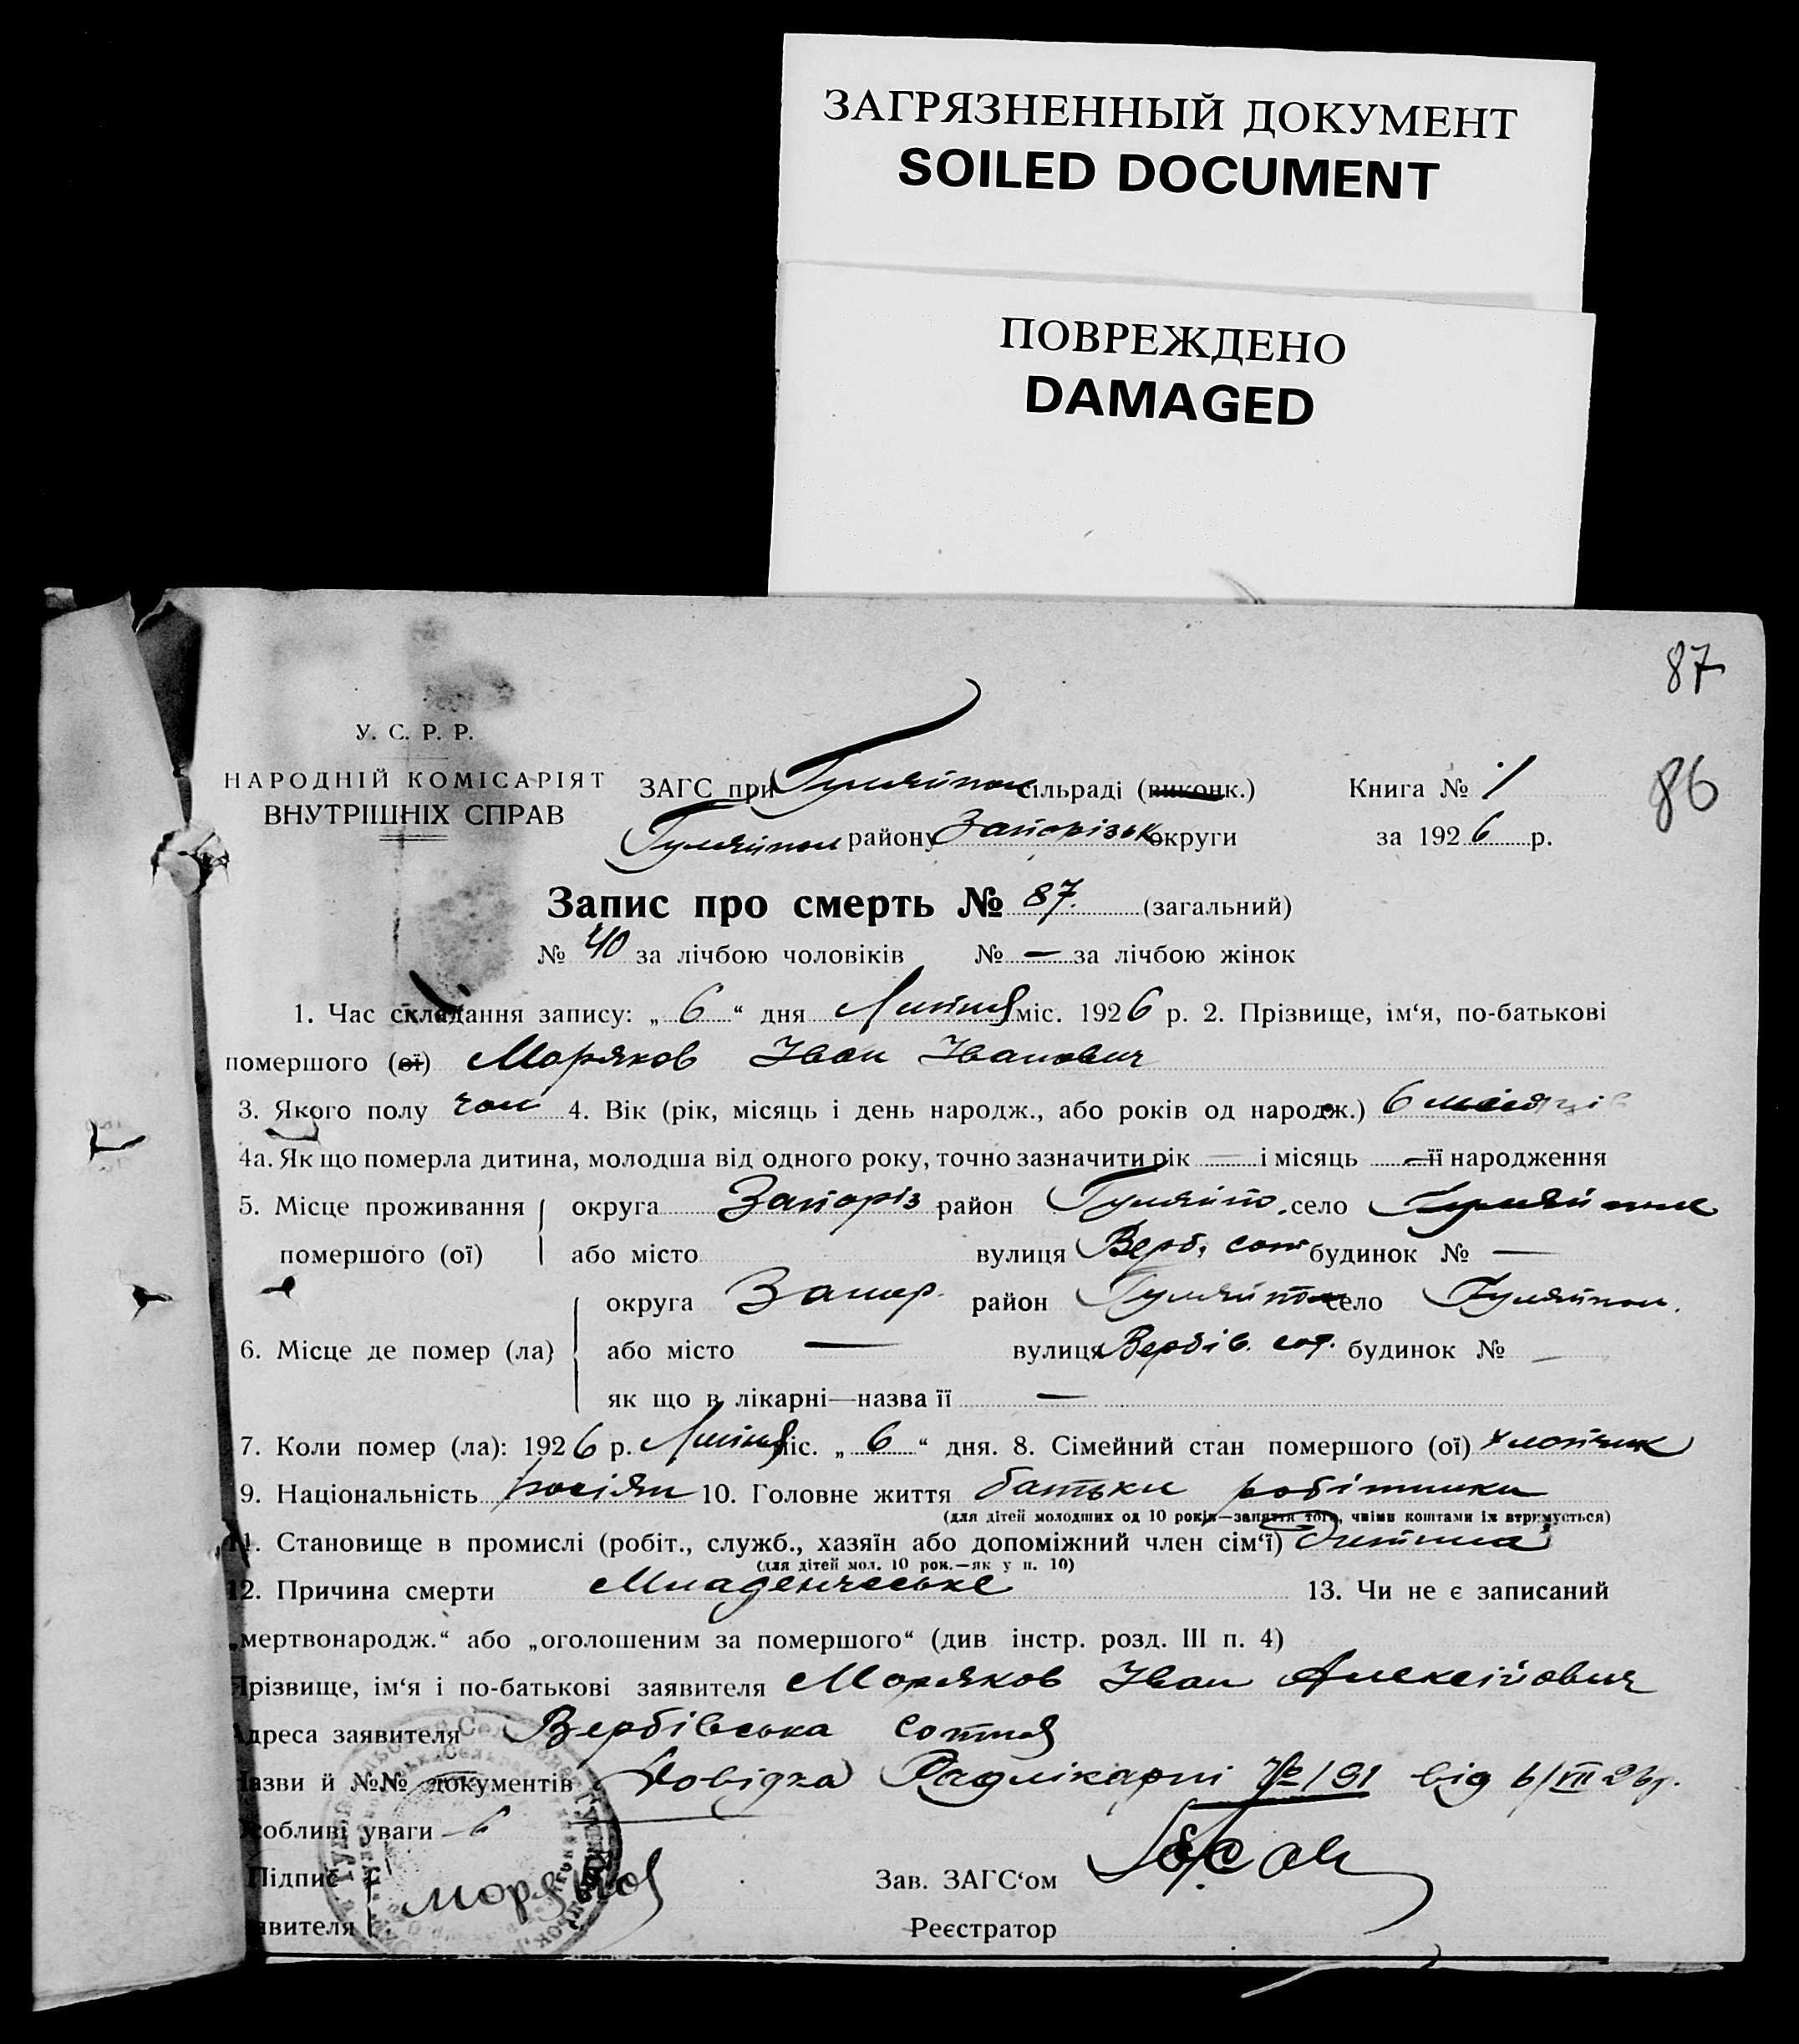 ЗАГРЯЗНЕННЫЙ ДОКУМЕНТ
SOILED DOCUMENT
ПОВРЕЖДЕНО
DAMAGED
87
86
У. С. Р. Р.
НАРОДНІЙ КОМІСАРІЯТ
ВНУТРІШНІХ СПРАВ
ЗАГС при Гуляйпол сільраді (виконк.) Книга № 1
Гуляйпол району Запорізьк округи за 1926 р.
Запис про смерть № 87. (загальний)
№ 40 за лічбою чоловіків № — за лічбою жінок
1. Час складання запису: „ 6 “ дня Липня міс. 1926 р. 2. Прізвище, ім‘я, по-батькові
помершого (ої) Моряков Іван Іванович
3. Якого полу чол 4. Вік (рік, місяць і день народж., або років од народж.) 6 місяців
4а. Як що померла дитина, молодша від одного року, точно зазначити рік — і місяць — її народження
5. Місце проживання округа Запоріз район Гуляйпо. село Гуляйполе
помершого (ої) або місто вулиця Верб. сот будинок № —
округа Запор. район Гуляйпол село Гуляйпол.
6. Місце де помер (ла) або місто — вулиця Вербів. сот. будинок № —
як що в лікарні—назва її —
7. Коли помер (ла): 1926 р. Липня міс. „ 6 “ дня. 8. Сімейний стан помершого (ої) хлопчик
9. Національність росіян 10. Головне життя батьки робітники
(для дітей молодших од 10 років—заняття того, чиїми коштами їх втримується)
11. Становище в промислі (робіт., служб., хазяїн або допоміжний член сім‘ї) Дитина
(для дітей мол. 10 рок.—як у п. 10)
12. Причина смерти Младенческьке 13. Чи не є записаний
„мертвонародж.“ або „оголошеним за помершого“ (див інстр. розд. III п. 4)
Прізвище, ім‘я і по-батькові заявителя Моряков Іван Алексійович
Адреса заявителя Вербівська сотня
Назви й №№ документів Довідка Радлікарні № 191 від 6/VII 26 р.
Особливі уваги
Підпис Моряков Зав. ЗАГС‘ом
явителя Реєстратор